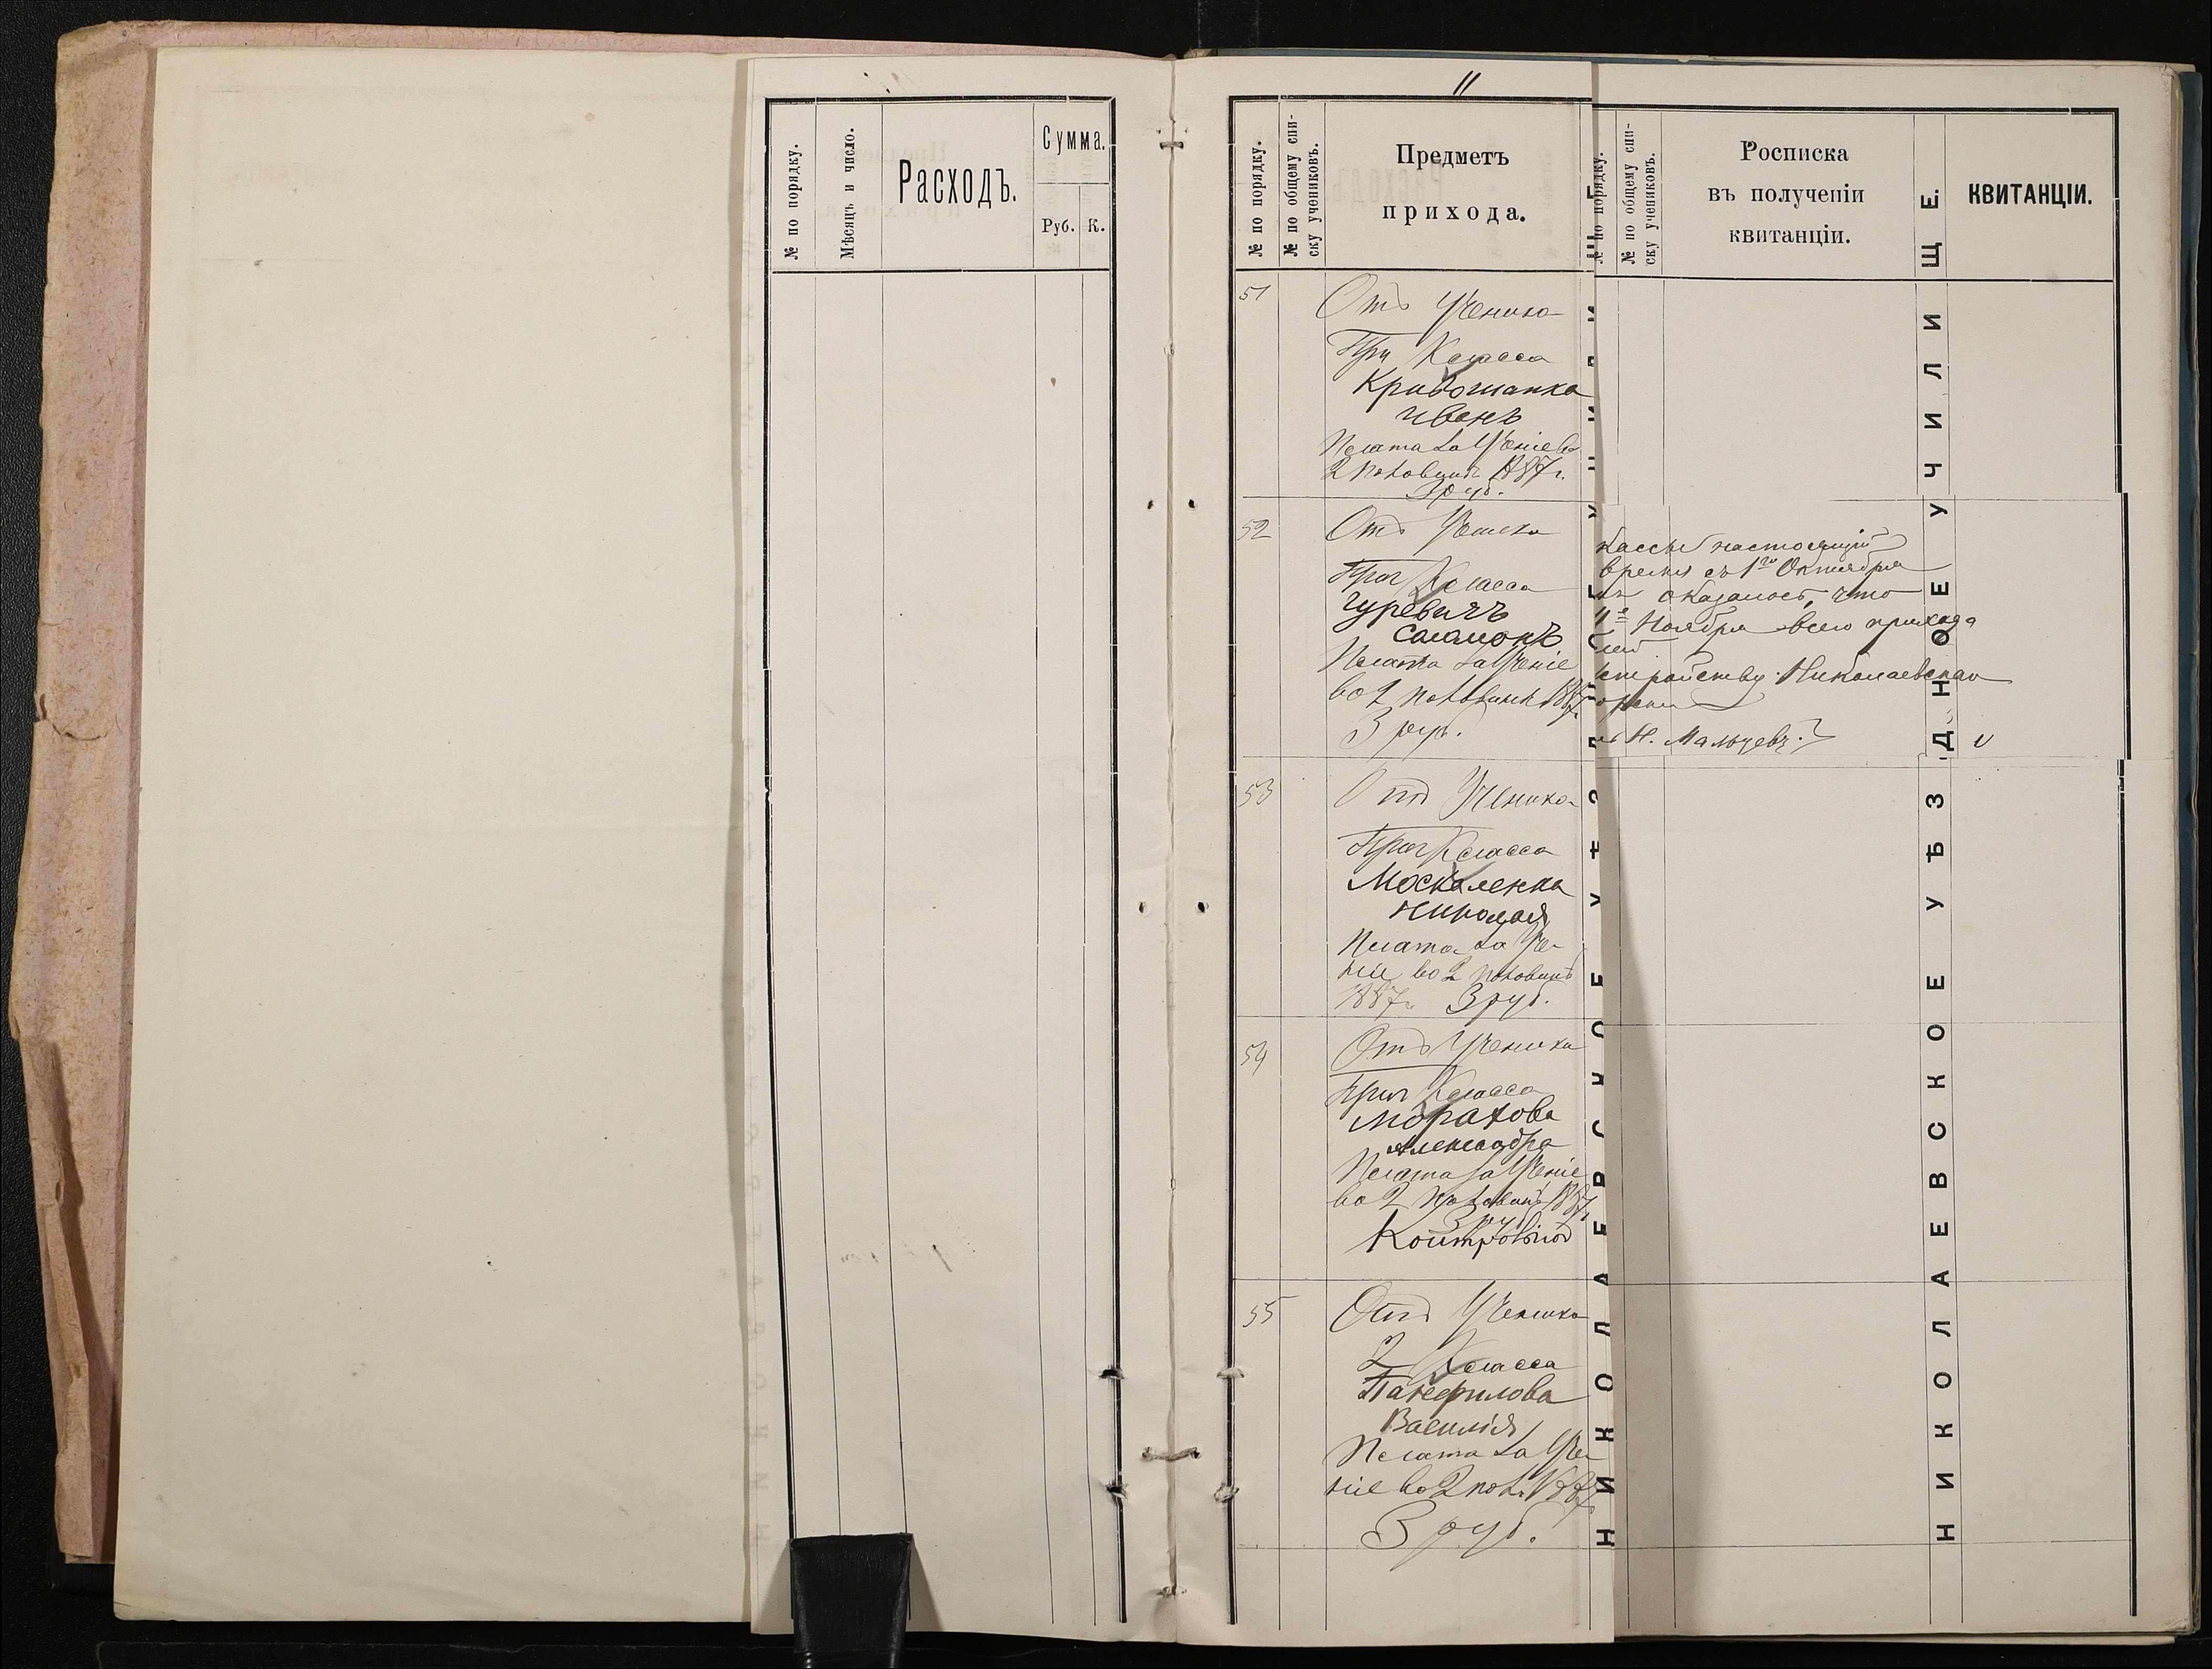 11
№ по порядку.
Мѣсяцъ и число.
Расходъ.
Сумма.
Руб.
К.
№ по порядку.
№ по общему спи-
ску учениковъ.
Предметъ
прихода.
51
Отъ Ученика
При Класса
Кривошапка
Ивонъ
Плата за Ученіе во
2 половинѣ 1887 г.
3 руб.
52
Отъ Ученика
Приг Класса
Гуревичъ
Саломонъ
Плата за Ученіе
во 2 половинѣ 1887
3 руб.
53
Отъ Ученика
Приг Класса
Москаленка
Николая
Плата за Уче-
ніе во 2 половинѣ
1887 г. 3 руб.
54
Отъ Ученика
Приг Класса
Морахова
Александра
Плата за Ученіе
во 2 половинѣ 1887
3 руб.
55
Отъ Ученика
2 Класса
Панфилова
Василія
Плата за Уче-
ніе во 2 пол. 1887
3 руб.
№ по порядку.
№ по общему спи-
ску учениковъ.
Росписка
въ полученіи
квитанціи.
КВИТАНЦІИ.
кассы настоящій
время съ 1го Октября
оказалось, что
Ноября всего прихода
Николаевскаго
Н. Мальцевъ.
НИКОЛАЕВСКОЕ УѢЗДНОЕ УЧИЛИЩЕ.